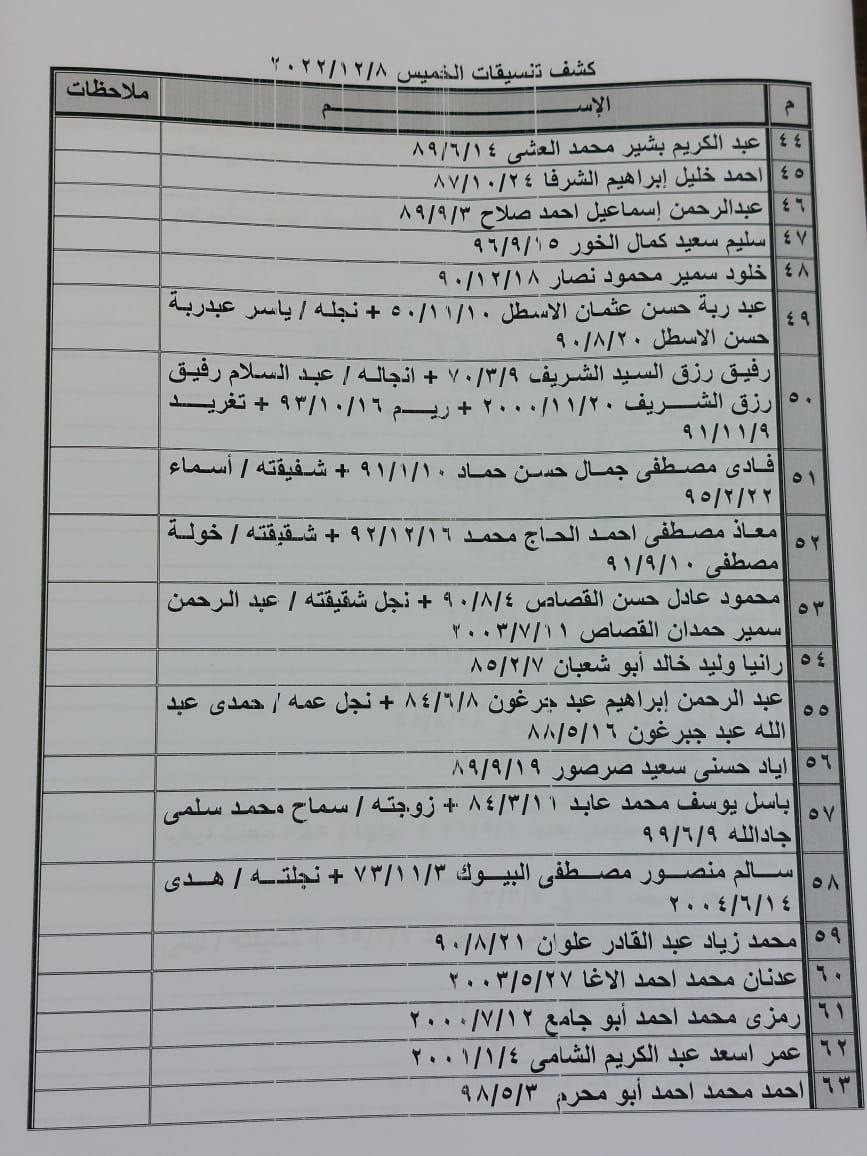 كشف تنسيقات الخميس ٢٠٢٢/١٢/٨
م الإســـــــم ملاحظات
٤٤ عبد الكريم بشير محمد العشى ٨٩/٦/١٤
٤٥ احمد خليل إبراهيم الشرفا ٨٧/١٠/٢٤
٤٦ عبدالرحمن إسماعيل احمد صلاح ٨٩/٩/٣
٤٧ سليم سعيد كمال الخور ٩٦/٩/١٥
٤٨ خلود سمير محمود نصار ٩٠/١٢/١٨
٤٩ عبد ربة حسن عثمان الاسطل ٥٠/١١/١٠ + نجله / ياسر عبدربة
حسن الاسطل ٩٠/٨/٢٠
٥٠ رفيق رزق السيد الشريف ٧٠/٣/٩ + انجاله / عبد السلام رفيق
رزق الشريف ٢٠٠٠/١١/٢٠ + ريم ٩٣/١٠/١٦ + تغريد
٩١/١١/٩
٥١ فادى مصطفى جمال حسن حماد ٩١/١/١٠ + شقيقته / أسماء
٩٥/٢/٢٢
٥٢ معاذ مصطفى احمد الحاج محمد ٩٢/١٢/١٦ + شقيقته / خولة
مصطفى ٩١/٩/١٠
٥٣ محمود عادل حسن القصاص ٩٠/٨/٤ + نجل شقيقته / عبد الرحمن
سمير حمدان القصاص ٢٠٠٣/٧/١١
٥٤ رانيا وليد خالد أبو شعبان ٨٥/٢/٧
٥٥ عبد الرحمن إبراهيم عبد جبرغون ٨٤/٦/٨ + نجل عمه / حمدى عبد
الله عبد جبرغون ٨٨/٥/١٦
٥٦ اياد حسنى سعيد صرصور ٨٩/٩/١٩
٥٧ باسل يوسف محمد عابد ٨٤/٣/١١ + زوجته / سماح محمد سلمى
جادالله ٩٩/٦/٩
٥٨ سالم منصور مصطفى البيوك ٧٣/١١/٣ + نجلته / هدى
٢٠٠٤/٦/١٤
٥٩ محمد زياد عبد القادر علوان ٩٠/٨/٢١
٦٠ عدنان محمد احمد الاغا ٢٠٠٣/٥/٢٧
٦١ رمزى محمد احمد أبو جامع ٢٠٠٠/٧/١٢
٦٢ عمر اسعد عبد الكريم الشامى ٢٠٠١/١/٤
٦٣ احمد محمد احمد أبو محرم ٩٨/٥/٣